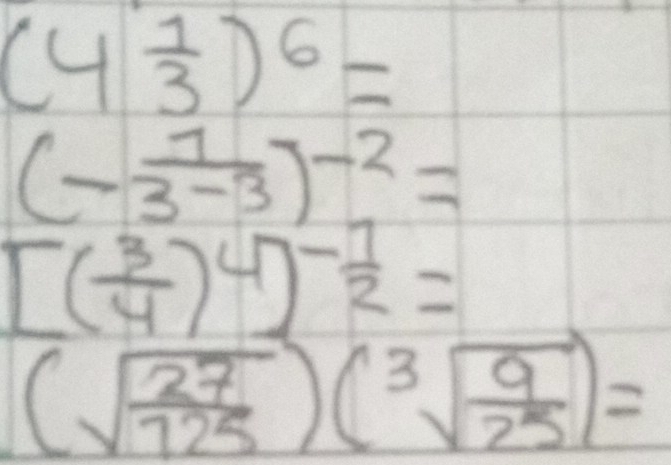 (4 1/3)^6 =
(- 1/(3-3))^-2 =
[(3/4)^4]^-1/2 =
(√(27/125))(³√(9/25)) =